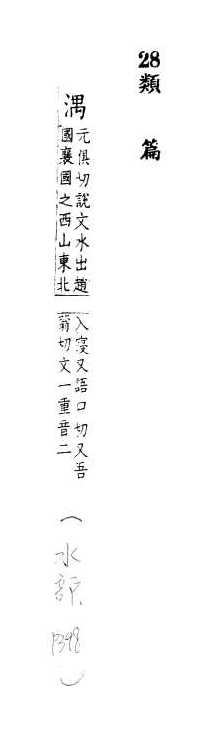 28類篇
湡
元俱切說文水出趙
國襄國之西山東北
入寖又語口切又吾
翁切文一重音二
(水部, P398)